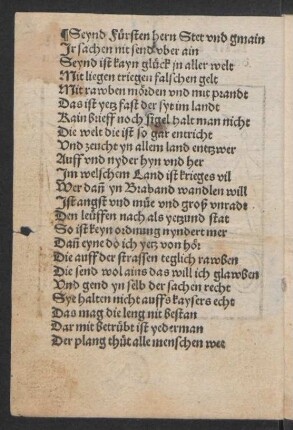 ¶Seynd Fürsten hern Stet vnd gmain
Ir sachen nit send vber ain
Seynd ist kayn glück in aller welt
Mit liegen triegen falschen gelt
Mit rawben mörden vnd mit prandt
Das ist yetz fast der syt im landt
Kain brieff noch sigel halt man nicht
Die welt die ist so gar entricht
Vnd zeucht yn allem land entzwer
Auff vnd nyder hyn vnd her
Im welschem Land ist krieges vil
Wer dañ yn Braband wandlen will
Ist angst vnd müe vnd groß vnradt
Den leüffen nach als yetzund stat
So ist keyn ordnung nyndert mer
Dañ eyne do ich yetz von hör
Die auff der strassen teglich rawben
Die send wol ains das will ich glawben
Vnd gend yn selb der sachen recht
Sye halten nicht auffs kaysers echt
Das mag die leng nit bestan
Dar mit betrübt ist yederman
Der plang thůt alle menschen wee